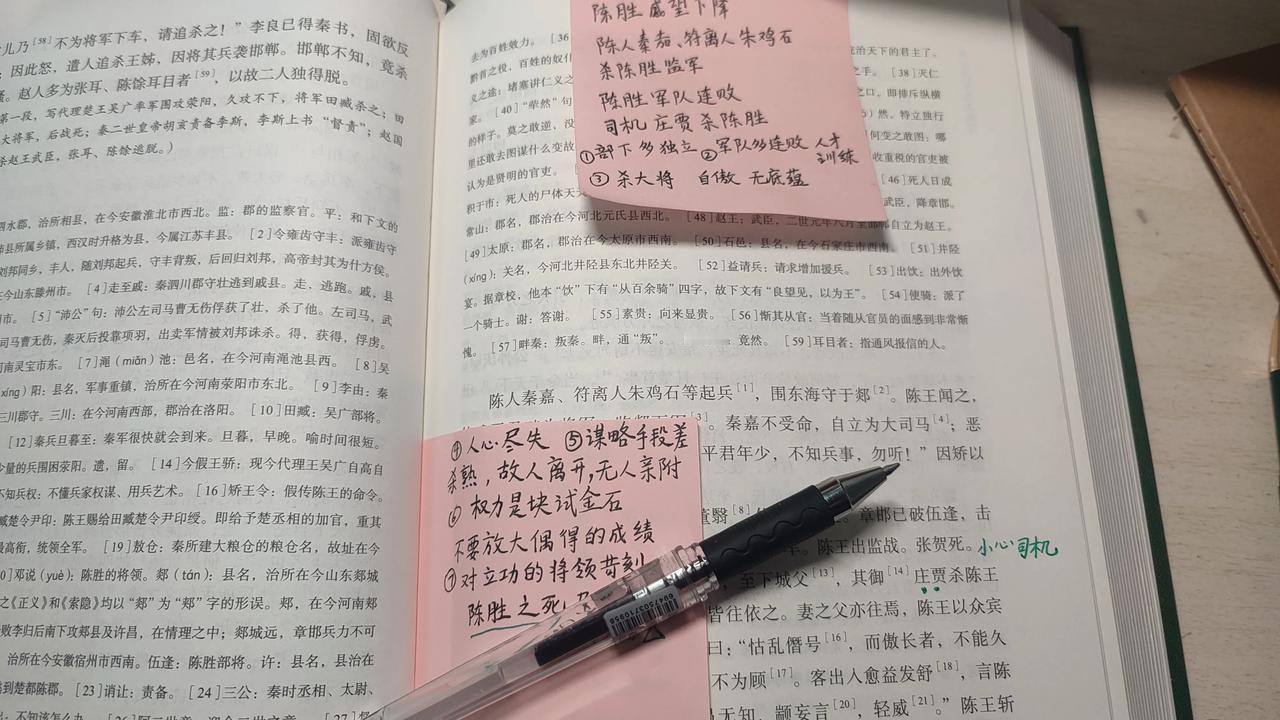 儿乃[58]不为将军下车，请追杀之！”李良已得秦书，固欲反
因此怒，遣人追杀王姊，因将其兵袭邯郸。邯郸不知，竟杀
赵人多为张耳、陈馀耳目者[59]，以故二人独得脱。
第一段，写代理楚王吴广率军围攻荥阳，久攻不下，将军田臧杀之；田
大将军，后战死；秦二世皇帝胡亥责备李斯，李斯上书“督责”；赵国
杀赵王武臣，张耳、陈馀逃脱。）
泗水郡，治所相县，在今安徽淮北市西北。监：郡的监察官。平：和下文的
沛县所属乡镇，西汉时升格为县，今属江苏丰县。 [2]令雍齿守丰：派雍齿守
刘邦同乡，丰人，随刘邦起兵，守丰背叛，后回归刘邦，高帝封其为什方侯。
在今山东滕州市。 [4]走至戚：秦泗川郡守壮逃到戚县。走，逃跑。戚，县
市。 [5]“沛公”句：沛公左司马曹无伤俘获了壮，杀了他。左司马，武
司马曹无伤，秦灭后投靠项羽，出卖军情被刘邦诛杀。得，获得，俘虏。
河南灵宝市东。 [7]渑（miǎn）池：邑名，在今河南渑池县西。 [8]吴
（xíng）阳：县名，军事重镇，治所在今河南荥阳市东北。 [9]李由：秦
三川郡守。三川：在今河南西部，郡治在洛阳。 [10]田臧：吴广部将。
[12]秦兵旦暮至：秦军很快就会到来。旦暮，早晚。喻时间很短。
少量的兵围困荥阳。遗，留。 [14]今假王骄：现今代理王吴广自高自
不知兵权：不懂兵家权谋、用兵艺术。 [16]矫王令：假传陈王的命令。
臧楚令尹印：陈王赐给田臧楚令尹印绶。即给予楚丞相的加官，重其
最高衔，统领全军。 [19]敖仓：秦所建大粮仓的粮仓名，故址在今
[20]邓说（yuè）：陈胜的将领。郯（tán）：县名，治所在今山东郯城
之《正义》和《索隐》均以“郯”为“郏”字的形误。郏，在今河南郏
败李归后南下攻郏县及许昌，在情理之中；郯城远，章邯兵力不可
治所在今安徽宿州市西南。伍逢：陈胜部将。许：县名，县治在
到楚都陈郡。 [23]诮让：责备。 [24]三公：秦时丞相、太尉、
陈胜威望下降
陈人秦嘉、符离人朱鸡石
杀陈胜监军
陈胜军队连败
司机 庄贾 杀陈胜
①部下多独立 ②军队多连败 人才训练
③杀大将 自傲 无底蕴
去为百姓效力。 [36
治天下的君主了。
黔首之役，百姓的奴仆
之手。 [38]灭仁
义之途：堵塞讲仁义之
之口，即排斥纵横
家。 [40]“荦然”句
然。特立独行
的样子。莫之敢逆，没
何变之敢图：哪
里还敢去图谋什么变故
收重税的官吏被
认为是贤明的官吏。
[46]死人日成
积于市：死人的尸体天天
武臣，降章邯。
常山：郡名，郡治在今河北元氏县西北。 [48]赵王：武臣，二世元年八月至邯郸自立为赵王。
[49]太原：郡名，郡治在今太原市西南。 [50]石邑：县名，在今石家庄市西南。 [51]井陉
（xíng）：关名，今河北井陉县东北井陉关。 [52]益请兵：请求增加援兵。 [53]出饮：出外饮
宴。据章校，他本“饮”下有“从百余骑”四字，故下文有“良望见，以为王”。 [54]使骑：派了
一个骑士。谢：答谢。 [55]素贵：向来显贵。 [56]惭其从官：当着随从官员的面感到非常惭
愧。 [57]畔秦：叛秦。畔，通“叛”。 竟然。 [59]耳目者：指通风报信的人。
陈人秦嘉、符离人朱鸡石等起兵[1]，围东海守于郯[2]。陈王闻之，
[3]。秦嘉不受命，自立为大司马[4]；恶
平君年少，不知兵事，勿听！”因矫以
董翳[8]
章邯已破伍逢，击
陈王出监战。张贺死。
小心司机
至下城父[13]，其御[14]庄贾杀陈王
皆往依之。妻之父亦往焉，陈王以众宾
曰：“怙乱僭号[16]，而傲长者，不能久
不为顾[17]。客出入愈益发舒[18]，言陈
愚无知，颛妄言[20]，轻威[21]。”陈王斩
④人心尽失 ⑤谋略手段差
杀熟，故人离开，无人亲附
⑥权力是块试金石
不要放大偶得的成绩
⑦对立功的将领苛刻
陈胜之死
6947503710958